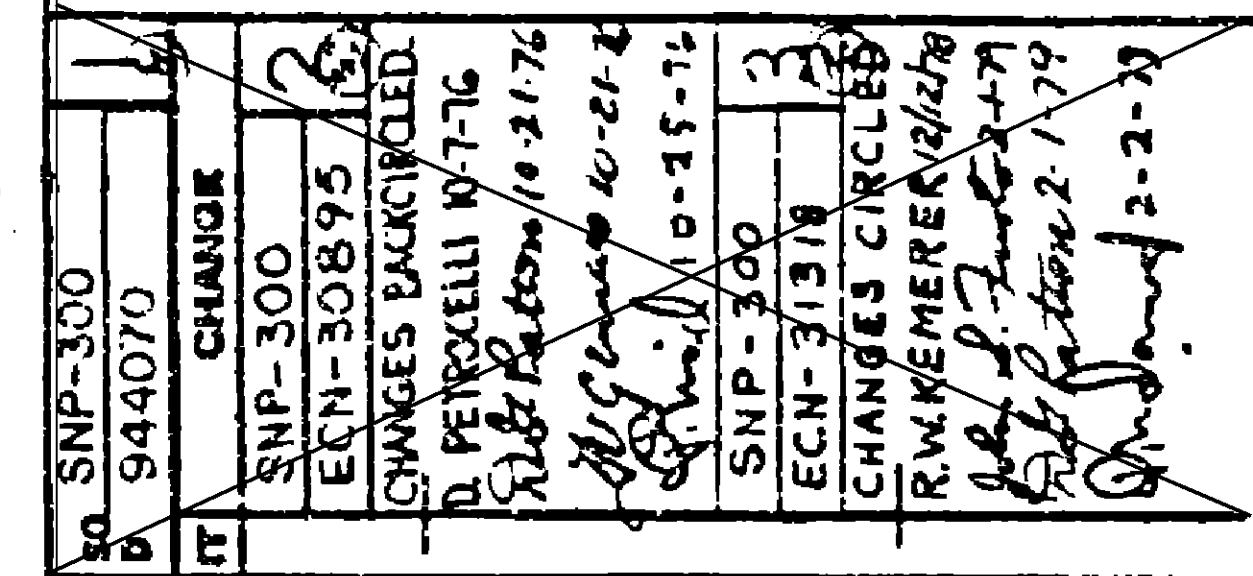 SO SNP-300 1
D 944070
IT CHANGE
SNP-300 2
ECN-30895
CHANGES BACKCIRCLED
D. PETROCELLI 10-7-76
Patton 10-21-76
10-21-
10-25-76
SNP-300 3
ECN-31318
CHANGES CIRCLED
R.W.KEMERER 12/12/78
John S. 2-1-79
Patton 2-1-79
2-2-79